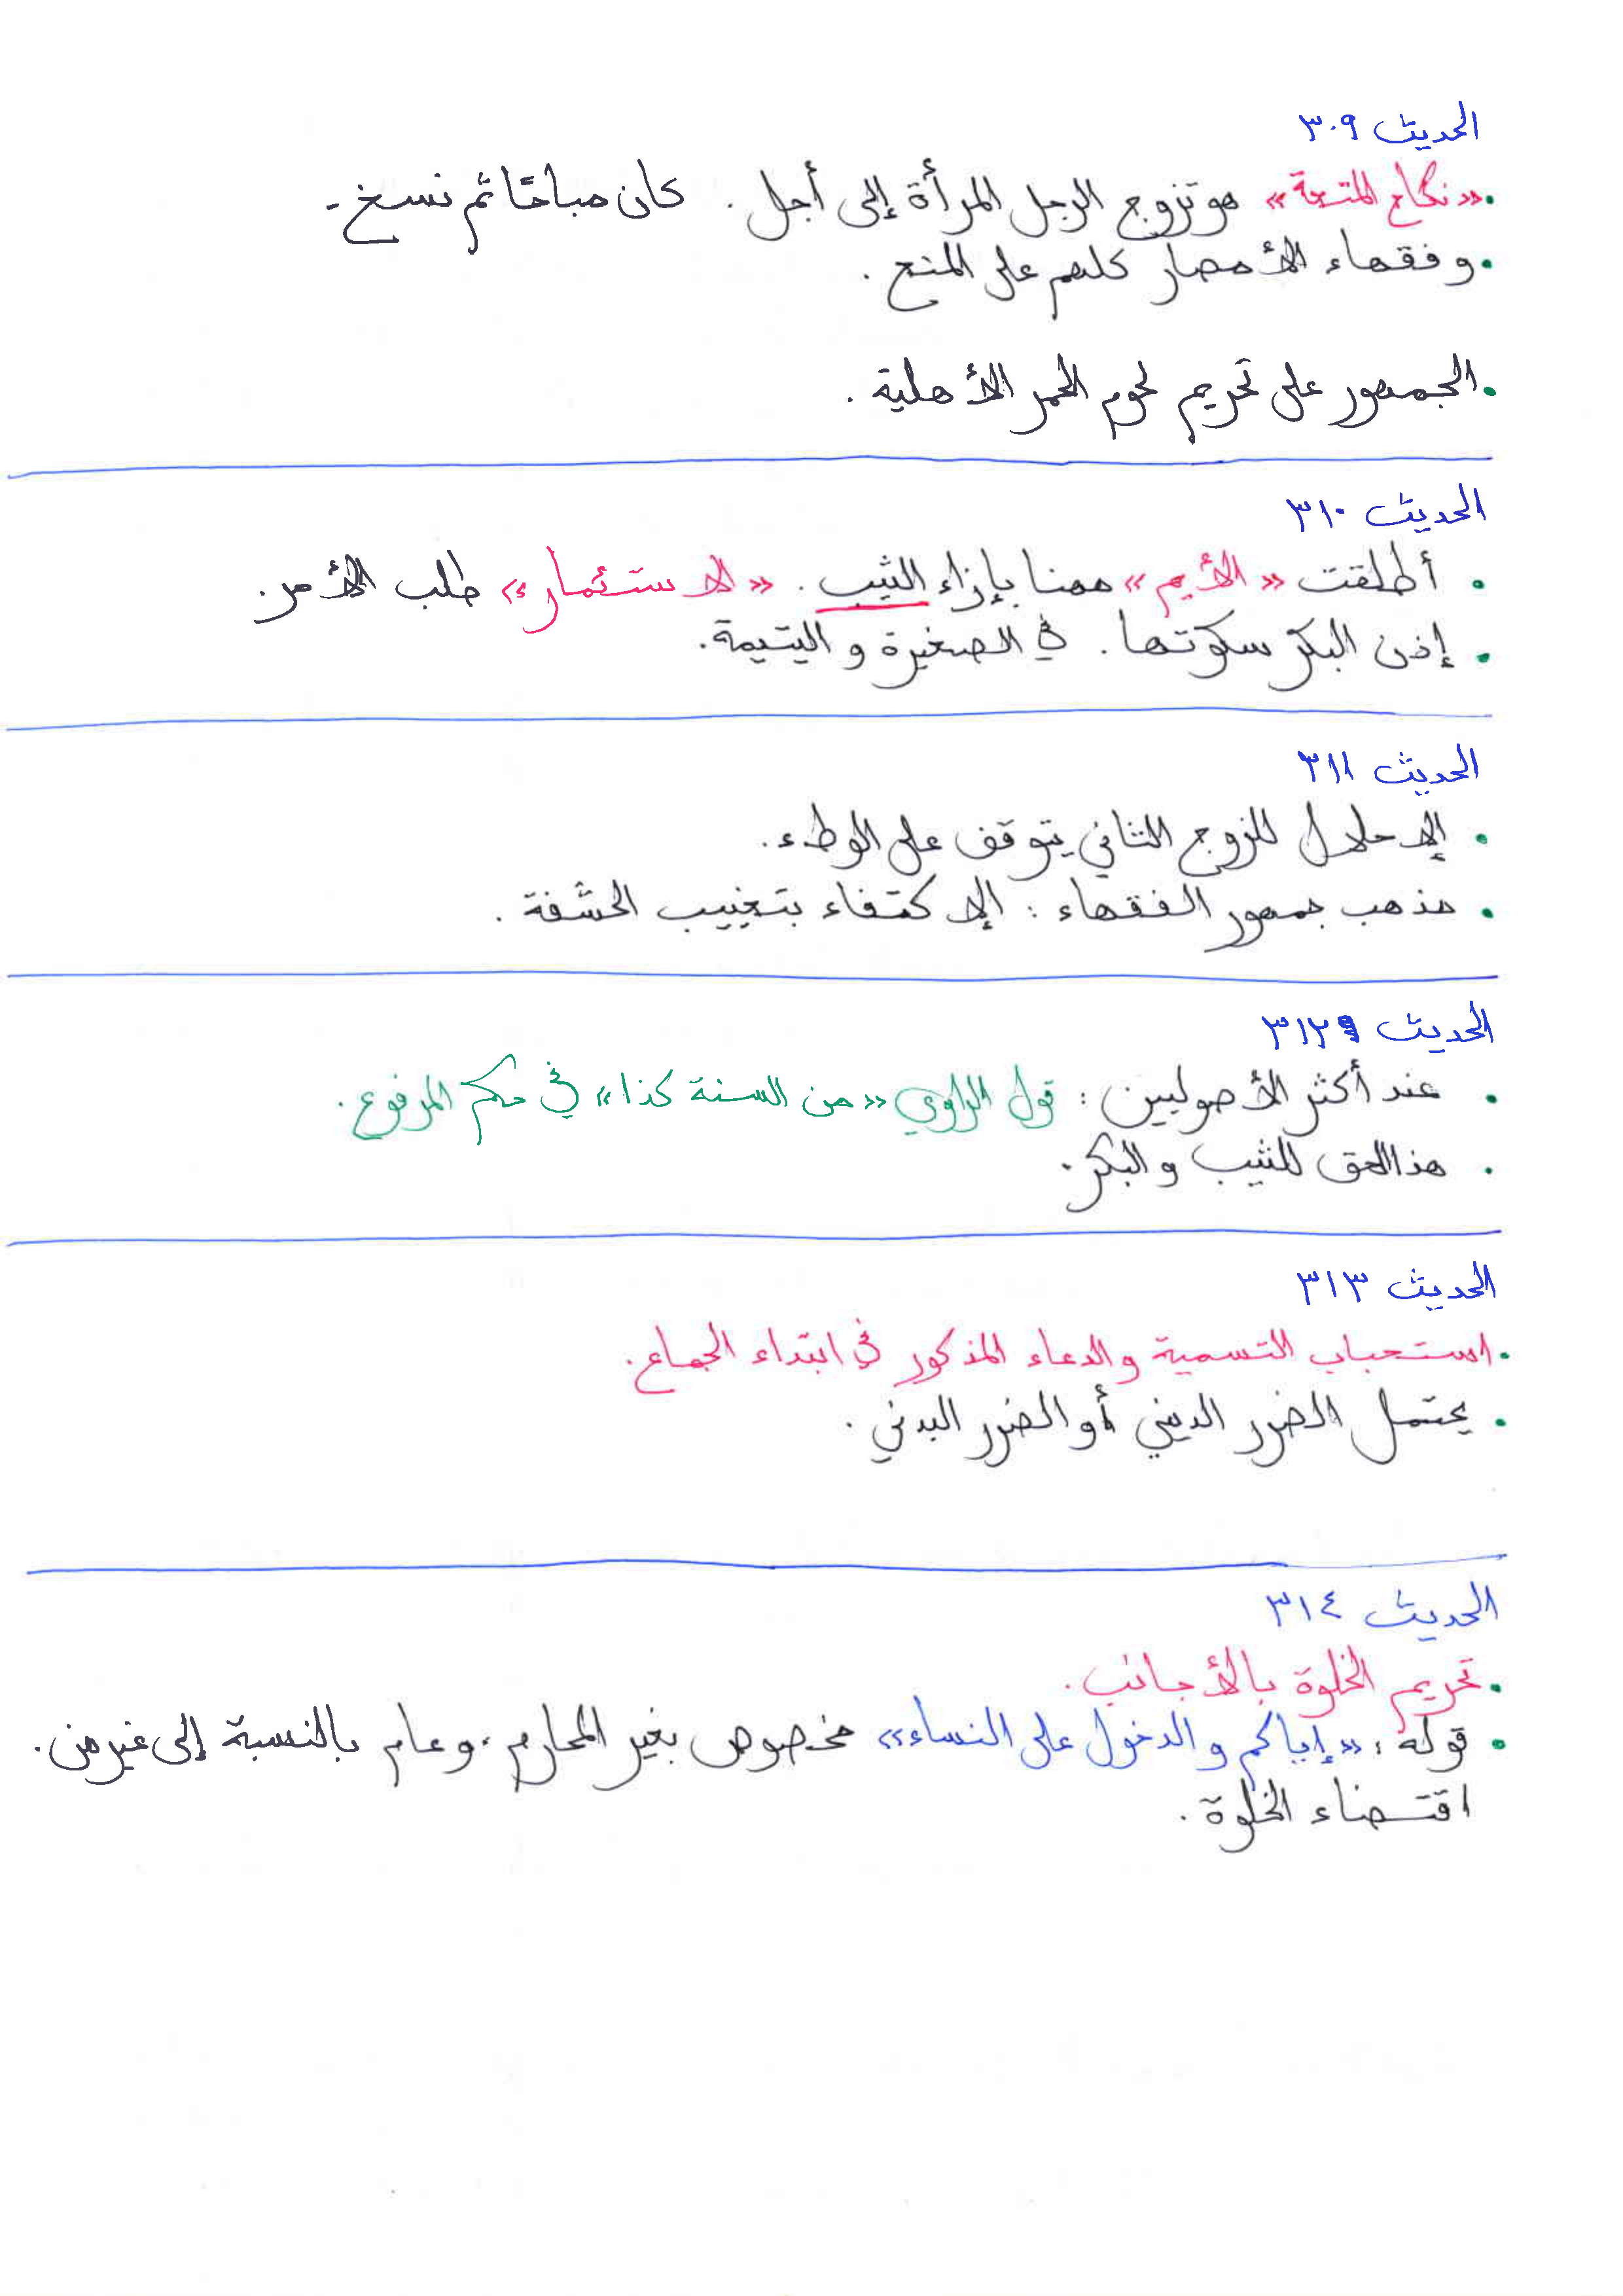 الحديث ٣٠٩
• «نكاح المتعة» هو تزوج الرجل المرأة إلى أجل. كان مباحًا ثم نسخ.
• وفقهاء الأمصار كلهم على المنع.
• الجمهور على تحريم لحوم الحمر الأهلية.
الحديث ٣١٠
• أطلقت «الأيم» ههنا بإزاء الثيب. «الاستئمار» طلب الأمر.
• إذن البكر سكوتها. في الصغيرة واليتيمة.
الحديث ٣١١
• الإحلال للزوج الثاني يتوقف على الوطء.
• مذهب جمهور الفقهاء: الإكتفاء بتغييب الحشفة.
الحديث ٣١٢
• عند أكثر الأصوليين: قول الراوي «من السنة كذا» في حكم المرفوع.
• هذا الحق للثيب والبكر.
الحديث ٣١٣
• استحباب التسمية والدعاء المذكور في ابتداء الجماع.
• يحتمل الضرر الديني أو الضرر البدني.
الحديث ٣١٤
• تحريم الخلوة بالأجانب.
• قوله: «إياكم والدخول على النساء» مخصوص بغير المحارم، وعام بالنسبة إلى غيرهن.
اقتضاء الخلوة.